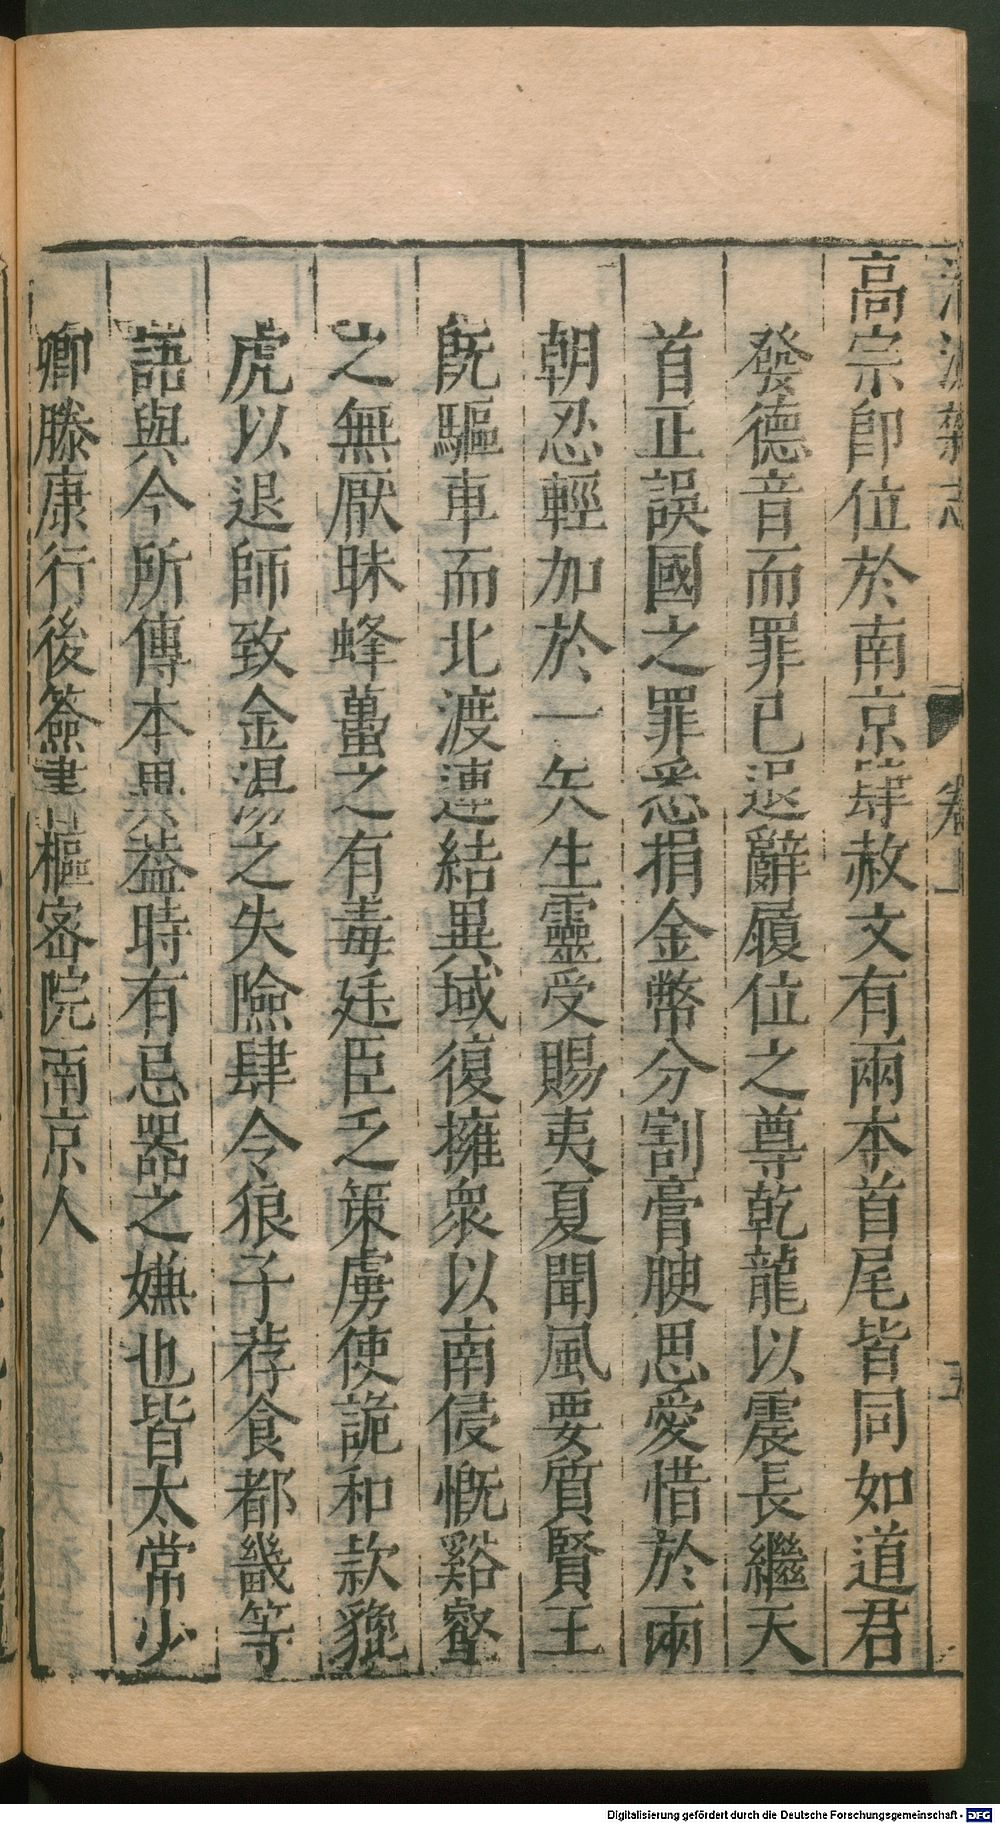 清波雜志 卷上 五
高宗卽位於南京肆赦文有兩本首尾皆同如道君
發德音而罪已退辭履位之尊乾龍以震長繼天
首正誤國之罪悉捐金幣分割膏腴思愛惜於兩
朝忍輕加於一矢生靈受賜夷夏聞風要質賢王
旣驅車而北渡連結異域復擁衆以南侵慨谿壑
之無厭昧蜂蠆之有毒廷臣乏策虜使詭和款貔
虎以退師致金湯之失險肆令狼子荐食都畿等
語與今所傳本異葢時有忌器之嫌也皆太常少
卿滕康行後簽書樞密院南京人
Digitalisierung gefördert durch die Deutsche Forschungsgemeinschaft - DFG